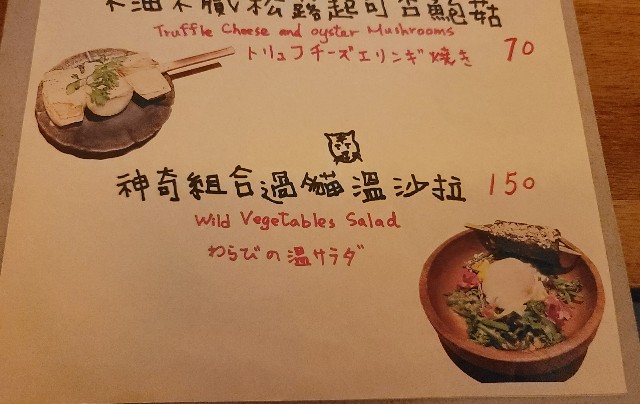 不油不膩松露起司杏鮑菇
Truffle Cheese and oyster Mushrooms
トリュフチーズエリンギ焼き 70
神奇組合過貓溫沙拉 150
Wild Vegetables Salad
わらびの温サラダ